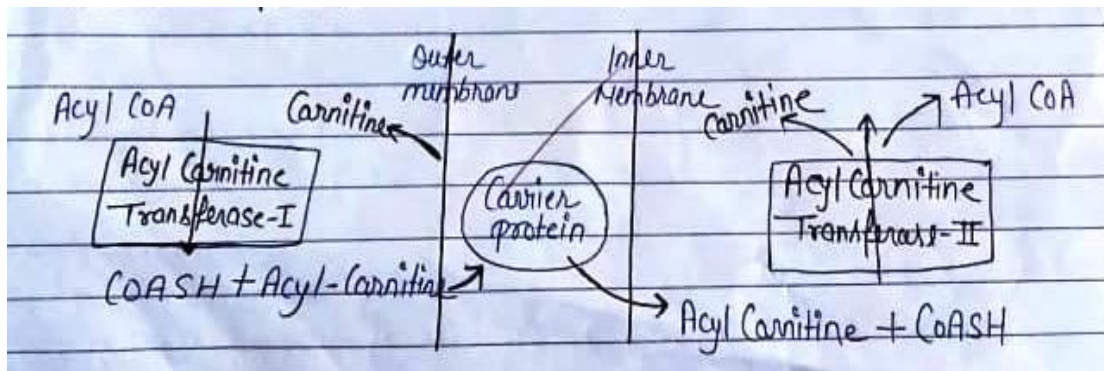 Outer
membrane
Inner
Membrane
Acyl CoA
Carnitine
Carnitine
Acyl CoA
Acyl Carnitine
Transferase-I
Carrier
protein
Acyl Carnitine
Transferase-II
COASH + Acyl-Carnitine
Acyl Carnitine + COASH